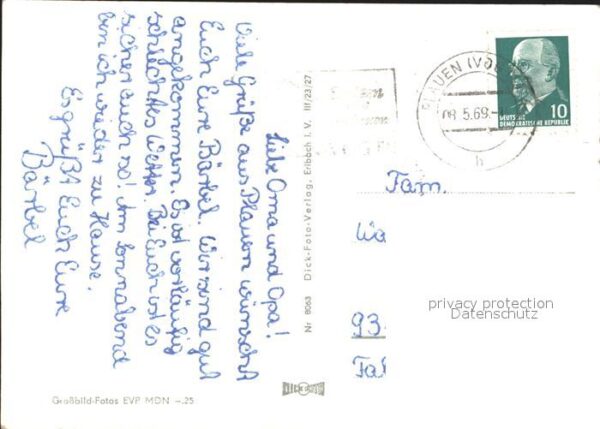 Liebe Oma und Opa!
Viele Grüße aus Plauen wünscht
Euch Eure Bärbel. Wir sind gut
angekommen. Es ist vorläufig
schlechtes Wetter. Bei Euch ist es
sicher auch so! Am Sonnabend
bin ich wieder zu Hause.
Es grüßt Euch Eure
Bärbel
Nr 8063 Dick-Foto-Verlag, Erlbach i. V. III/23/27
Großbild-Fotos EVP MDN -.25
PLAUEN (VOGTL
08.5.69.-
h
10
DEUTSCHE
DEMOKRATISCHE REPUBLIK
Fam.
Wa
93
privacy protection
Datenschutz